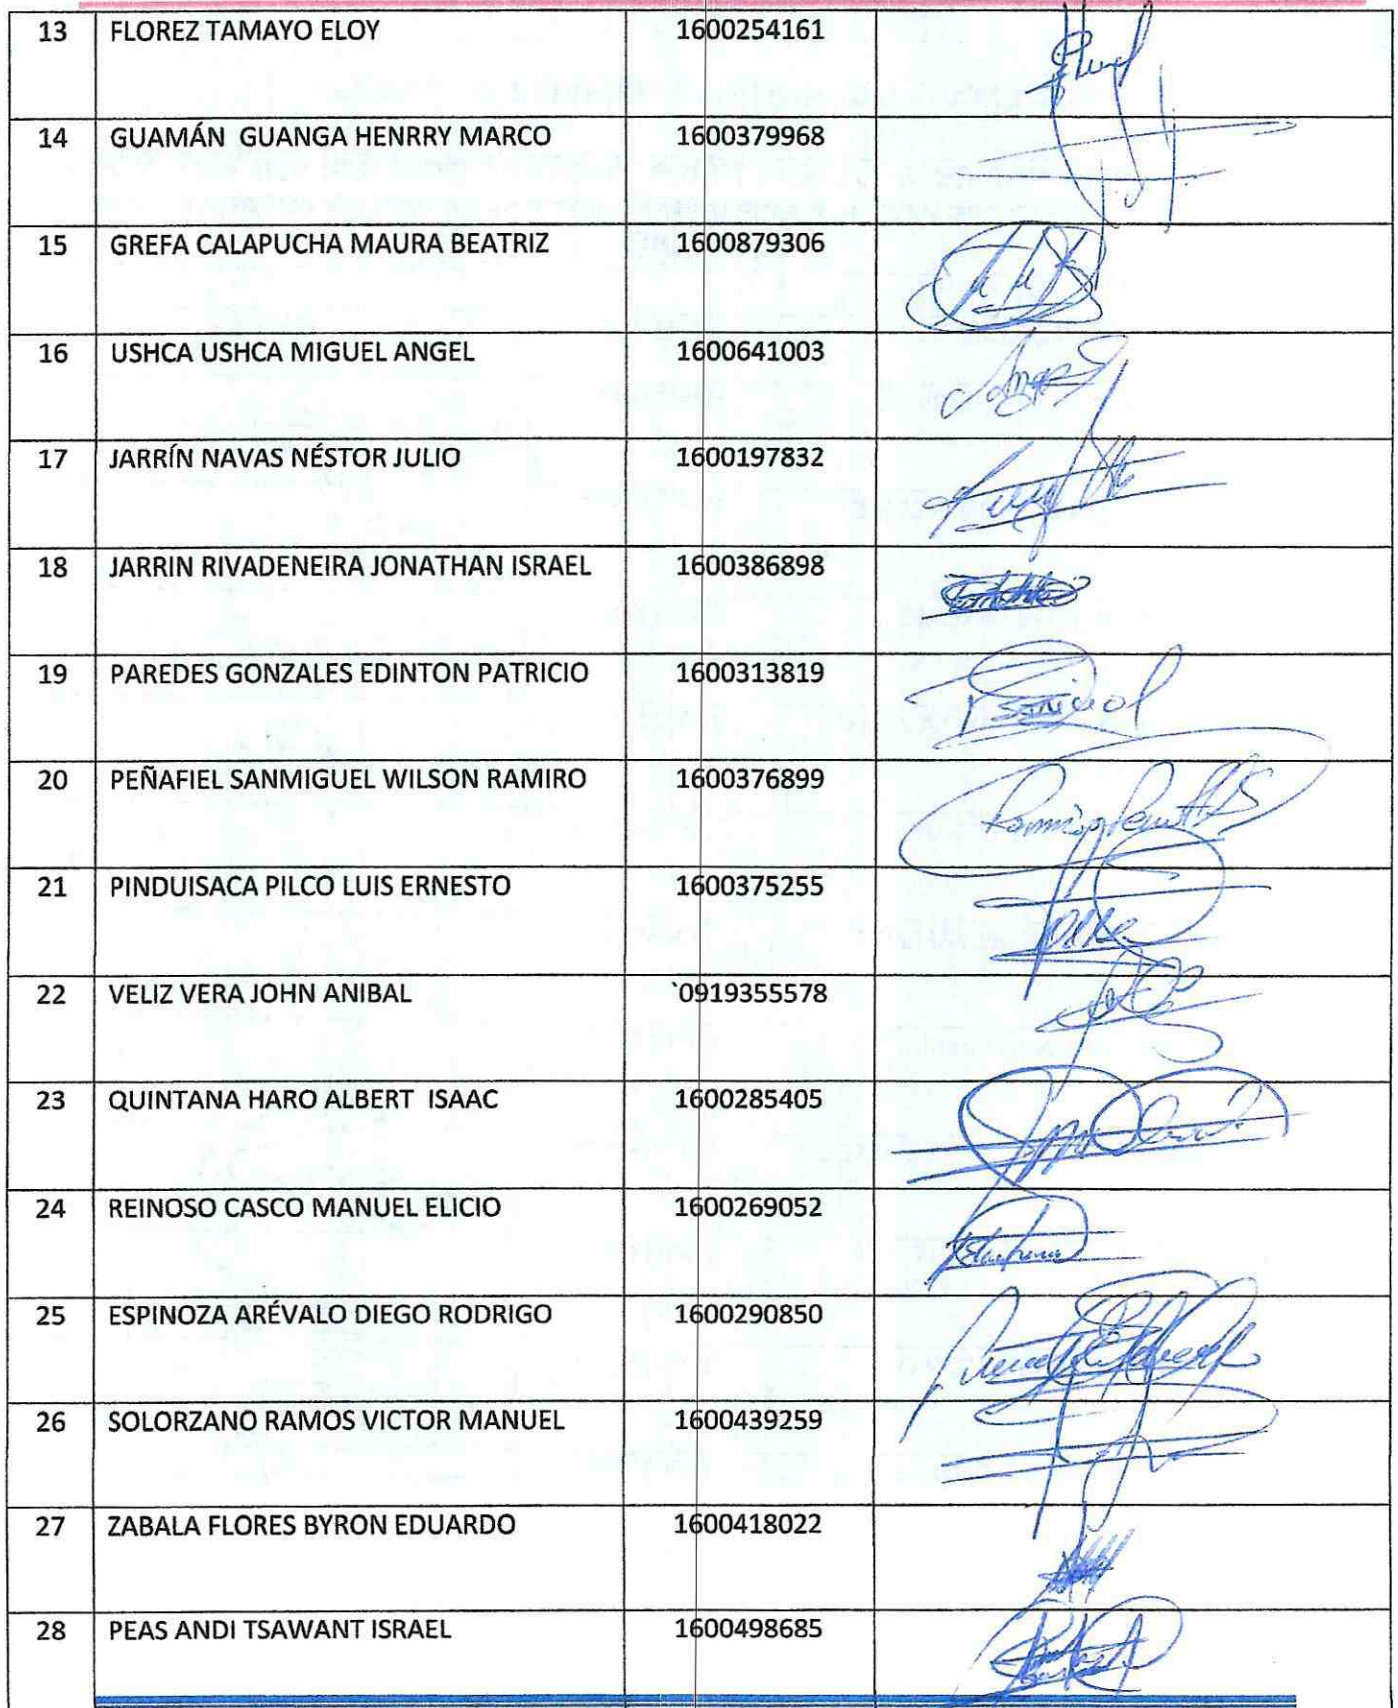 13 FLOREZ TAMAYO ELOY 1600254161
14 GUAMÁN GUANGA HENRRY MARCO 1600379968
15 GREFA CALAPUCHA MAURA BEATRIZ 1600879306
16 USHCA USHCA MIGUEL ANGEL 1600641003
17 JARRÍN NAVAS NÉSTOR JULIO 1600197832
18 JARRIN RIVADENEIRA JONATHAN ISRAEL 1600386898
19 PAREDES GONZALES EDINTON PATRICIO 1600313819
20 PEÑAFIEL SANMIGUEL WILSON RAMIRO 1600376899
21 PINDUISACA PILCO LUIS ERNESTO 1600375255
22 VELIZ VERA JOHN ANIBAL `0919355578
23 QUINTANA HARO ALBERT ISAAC 1600285405
24 REINOSO CASCO MANUEL ELICIO 1600269052
25 ESPINOZA ARÉVALO DIEGO RODRIGO 1600290850
26 SOLORZANO RAMOS VICTOR MANUEL 1600439259
27 ZABALA FLORES BYRON EDUARDO 1600418022
28 PEAS ANDI TSAWANT ISRAEL 1600498685